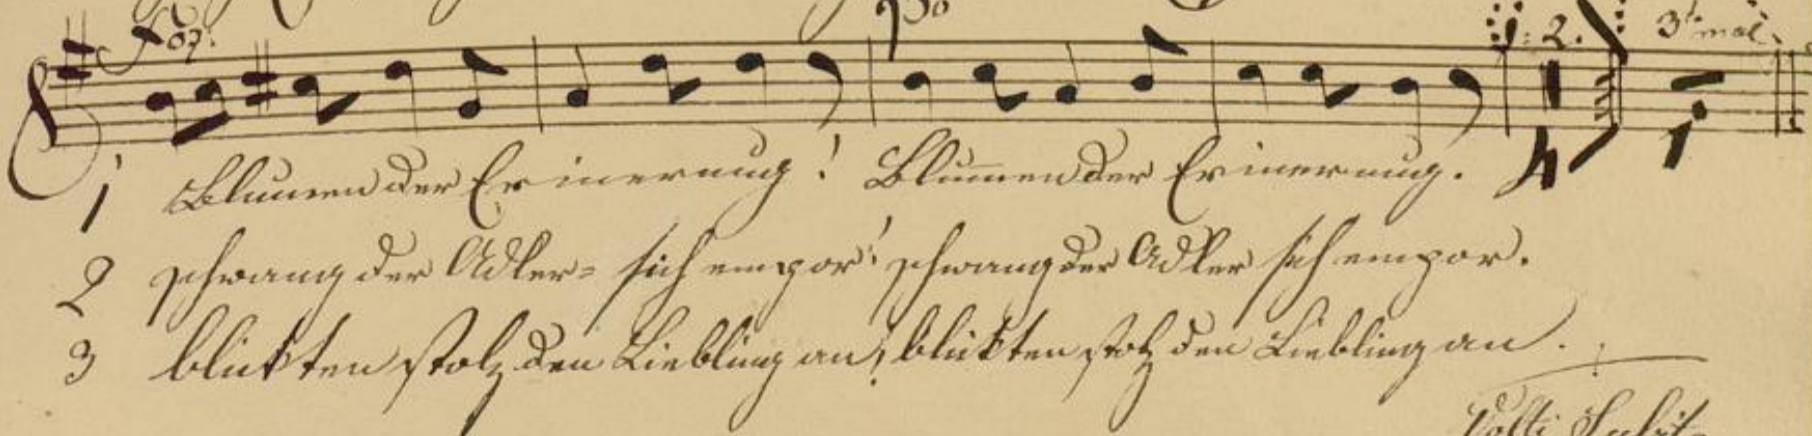 foz: po
1: 2. 3t mal
1 Blumen der Erinerung! Blumen der Erinerung. 4 1
2 schwang der Adler= sich empor! schwang der Adler sich empor.
3 blickten stolz den Liebling an, blickten stolz den Liebling an.
Volti Subit